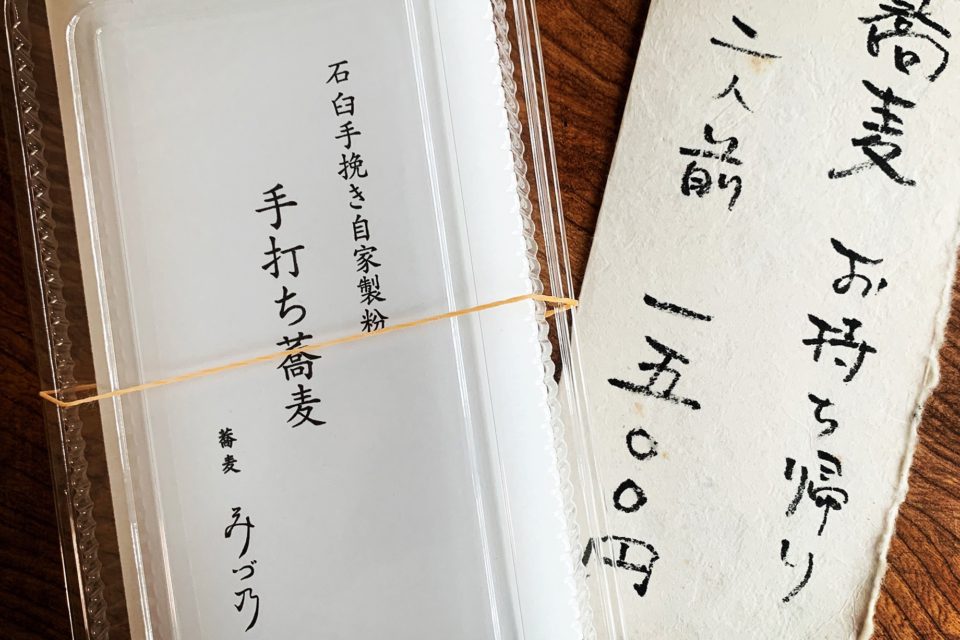 蕎麦 お持ち帰り
二人前 一五〇〇円
石臼手挽き自家製粉
手打ち蕎麦
蕎麦 みづ乃